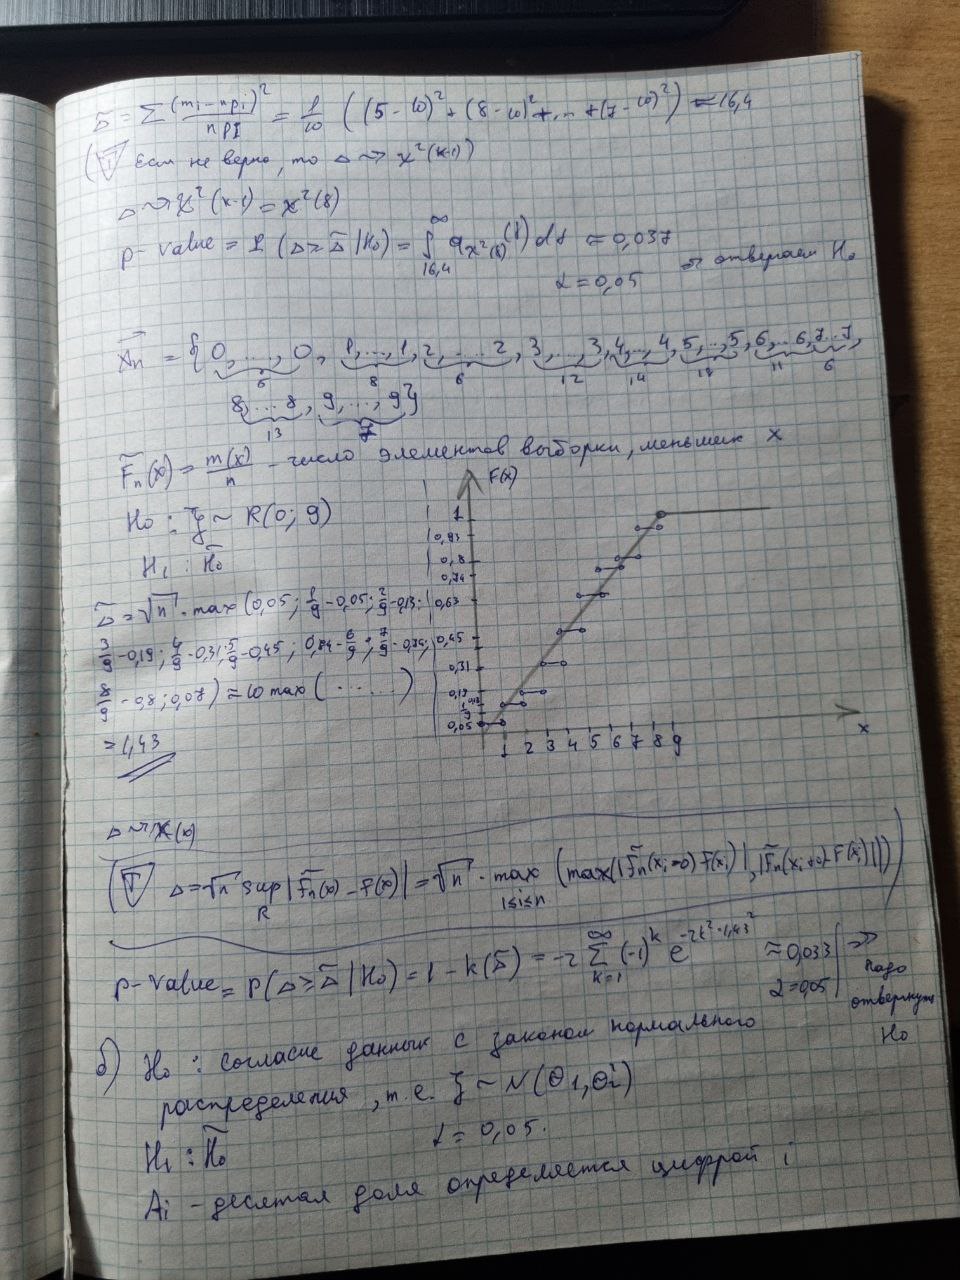 Δ̃ = Σ (mᵢ - npᵢ)² / npᵢ = 1/10 ((5-10)² + (8-10)² + ... + (7-10)²) ≈ 16,4
(T Если не верно, то Δ ⇝ χ²(k-1))
Δ ⇝ χ²(k-1) = χ²(8)
p-value = P(Δ ≥ Δ̃ | H₀) = ∫₁₆,₄^∞ q_χ²(8)(t) dt ≈ 0,037
α = 0,05 ⇒ отвергаем H₀
X⃗n = { 0,...,0, 1,...,1, 2,...2, 3,...,3, 4,...,4, 5,...,5, 6,...6, 7...7,
8,...8, 9,...,9}
13 7
F̃n(x) = m(x)/n - число элементов выборки, меньших x
H₀ : ξ ~ R(0; 9)
H₁ : H̄₀
Δ̃ = √n · max(0,05; 1/9 - 0,05; 2/9 - 0,13;
3/9 - 0,19; 4/9 - 0,31; 5/9 - 0,45; 0,74 - 6/9; 7/9 - 0,74;
8/9 - 0,8; 0,07) ≈ 10 max(......)
= 1,43
F(x)
1
0,93
0,8
0,74
0,63
0,45
0,31
0,19
0,05
1 2 3 4 5 6 7 8 9
x
Δ ⇝ K(x)
(T Δ = √n sup_R |F̃n(x) - F(x)| = √n · max_{1≤i≤n} (max(|F̃n(xᵢ-0) F(xᵢ)|, |F̃n(xᵢ+0) - F(xᵢ)|)))
p-value = P(Δ ≥ Δ̃ | H₀) = 1 - k(Δ̃) = -2 Σ_{k=1}^∞ (-1)^k e^{-2k²·1,43²} ≈ 0,033
α = 0,05 ⇒ надо отвергнуть H₀
б) H₀ : согласие данных с законом нормального
распределения, т.е. ξ ~ N(θ₁, θ₂²)
H₁ : H̄₀
α = 0,05.
Aᵢ - десятая доля определяется цифрой i